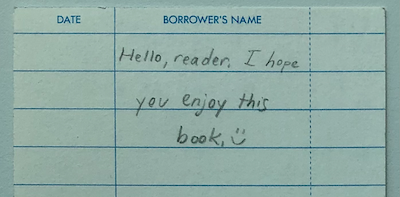 DATE BORROWER'S NAME
Hello, reader. I hope
you enjoy this
book.